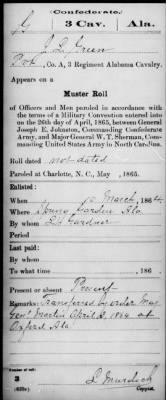 (Confederate.)
G 3 Cav. Ala.
J L Green
Pvt, Co. A, 3 Regiment Alabama Cavalry.
Appears on a
Muster Roll
of Officers and Men paroled in accordance with
the terms of a Military Convention entered into
on the 26th day of April, 1865, between General
Joseph E. Johnston, Commanding Confederate
Army, and Major General W. T. Sherman, Com-
manding United States Army in North Carolina.
Roll dated not dated
Paroled at Charlotte, N. C., May , 1865.
Enlisted:
When March, 186
Where Ala.
By whom Gardner
Last paid:
By whom
To what time , 186 .
Present or absent Present
Remarks: Transferred by order Maj
Genl Martin April 3, 1864 at
Oxford Ala
Number of roll:
3
(639b) L Murdoch
Copyist.